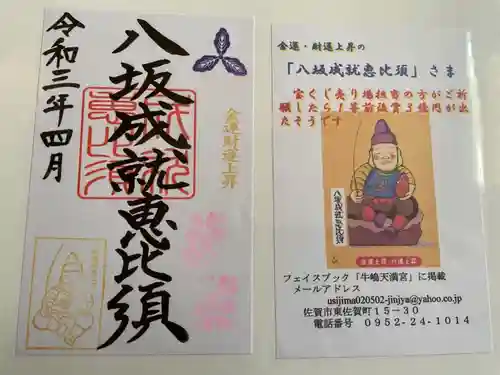 令和三年四月
八坂成就恵比須
金運財運上昇
金運・財運上昇の
「八坂成就恵比須」さま
宝くじ売り場担当の方がご祈
願したら1等前後賞3億円が出
たそうです
八坂成就恵比須
フェイスブック「牛嶋天満宮」に掲載
メールアドレス
usijima020502-jinjya@yahoo.co.jp
佐賀市東佐賀町15－30
電話番号 0952-24-1014